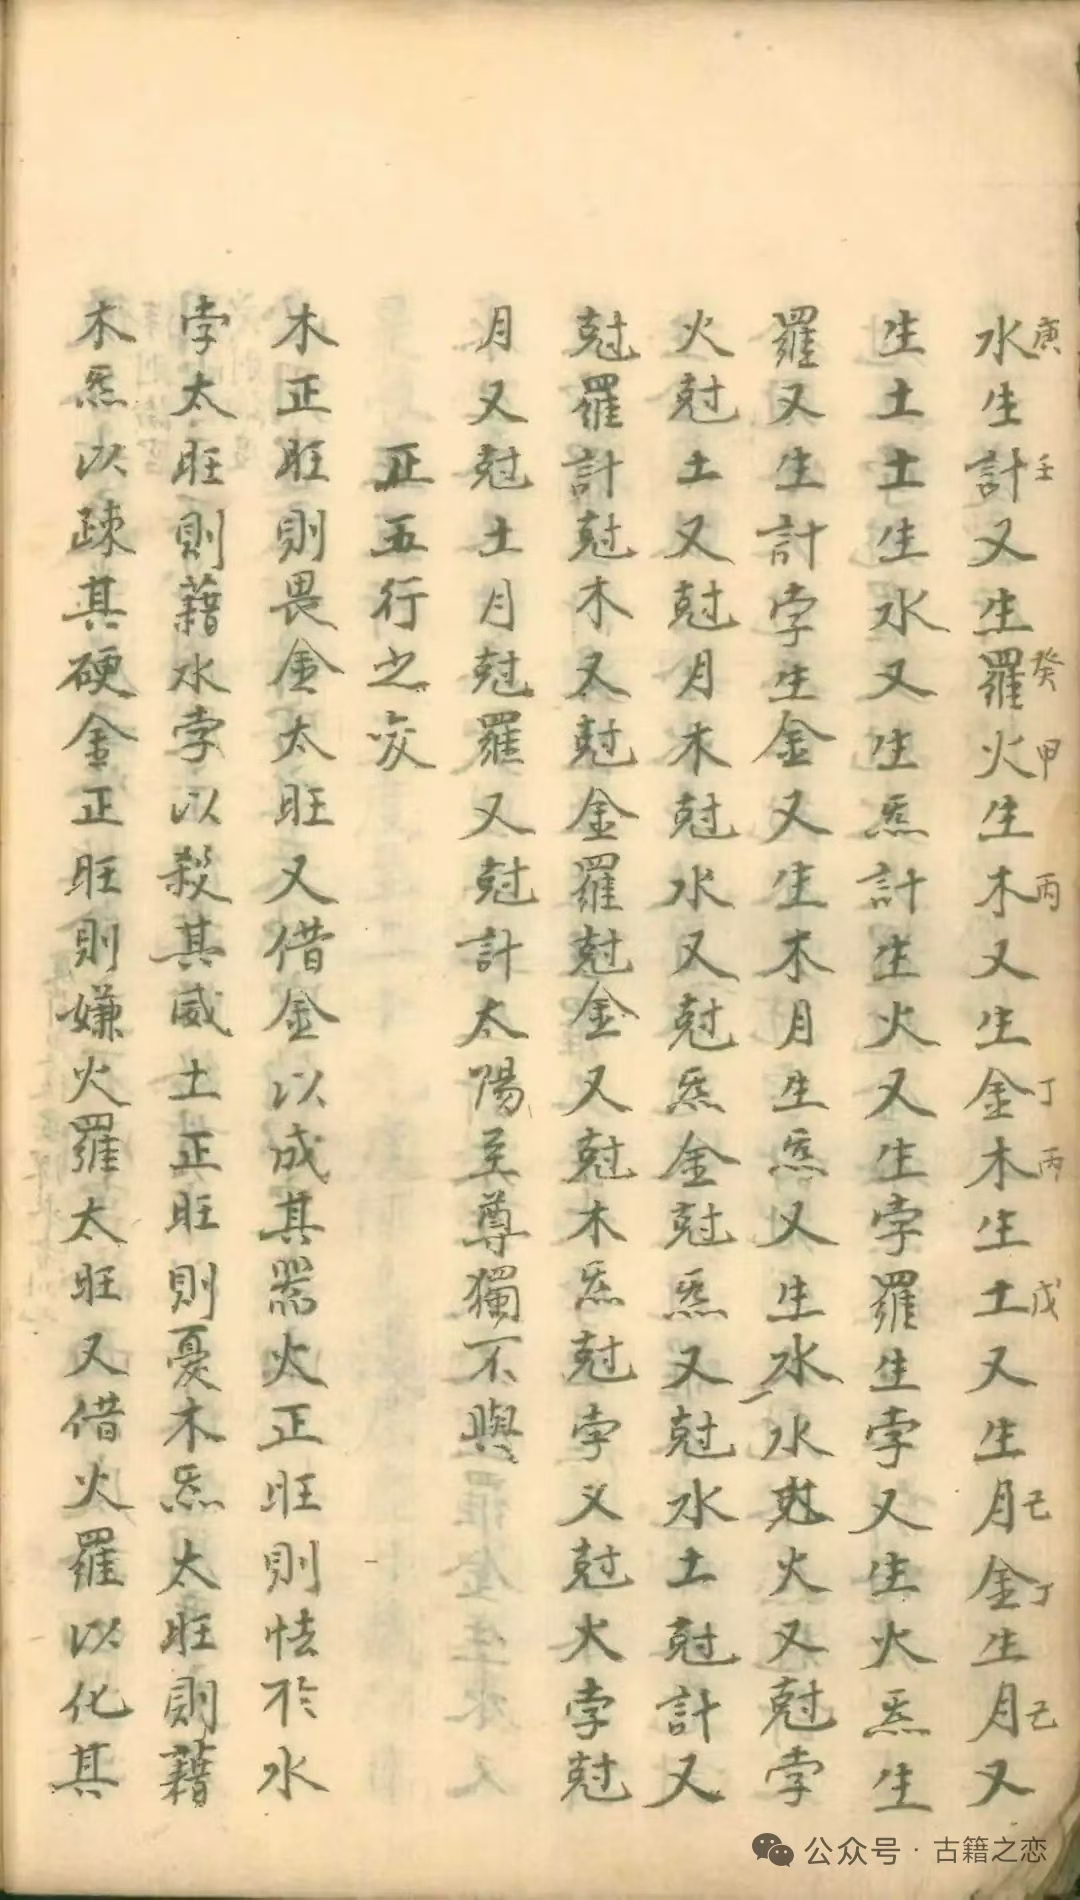 水生計又生羅火生木又生金木生土又生月金生月又
庚壬癸甲丙丁丙戊己丁己
生土土生水又生炁計生火又生孛羅生孛又生火炁生
羅又生計孛生金又生木月生炁又生水水尅火又尅孛
火尅土又尅月木尅水又尅炁金尅炁又尅水土尅計又
尅羅計尅木又尅金羅尅金又尅木炁尅孛又尅火孛尅
月又尅土月尅羅又尅計太陽至尊獨不與
正五行之
木正旺則畏金太旺又借金以成其器火正旺則怯於水
孛太旺則藉水孛以殺其威土正旺則憂木炁太旺則藉
木炁以疎其硬金正旺則嫌火羅太旺又借火羅以化其
公众号·古籍之恋